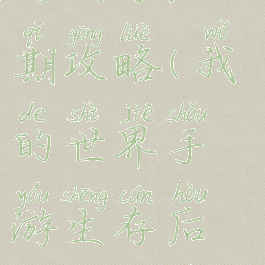 qī gōng lüè wǒ
期攻略(我
de shì jiè shǒu
的世界手
yóu shēng cún hòu
游生存后